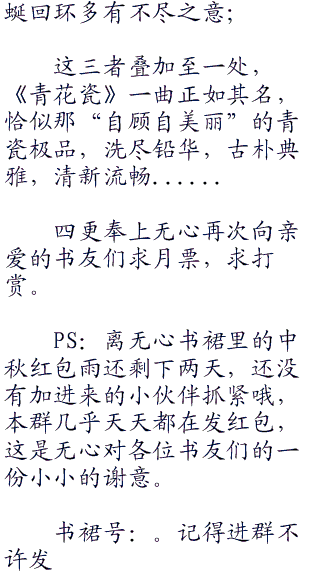 蜒回环多有不尽之意；
这三者叠加至一处，
《青花瓷》一曲正如其名，
恰似那“自顾自美丽”的青
瓷极品，洗尽铅华，古朴典
雅，清新流畅......
四更奉上无心再次向亲
爱的书友们求月票，求打
赏。
PS：离无心书裙里的中
秋红包雨还剩下两天，还没
有加进来的小伙伴抓紧哦，
本群几乎天天都在发红包，
这是无心对各位书友们的一
份小小的谢意。
书裙号：。记得进群不
许发